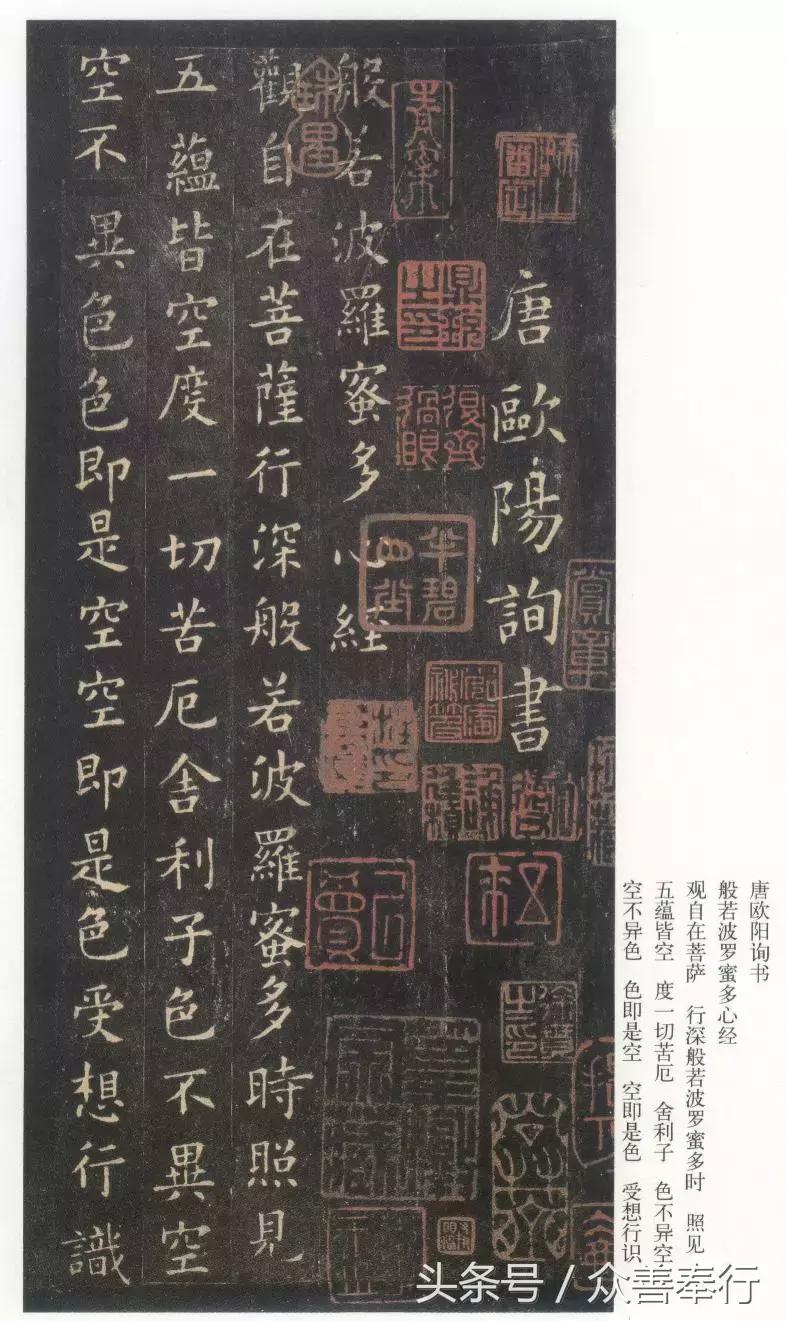 唐歐陽詢書
般若波羅蜜多心経
觀自在菩薩行深般若波羅蜜多時照見
五蘊皆空度一切苦厄舍利子色不異空
空不異色色即是空空即是色受想行識
唐欧阳询书
般若波罗蜜多心经
观自在菩萨 行深般若波罗蜜多时 照见
五蕴皆空 度一切苦厄 舍利子 色不异空
空不异色 色即是空 空即是色 受想行识
头条号 / 众善奉行